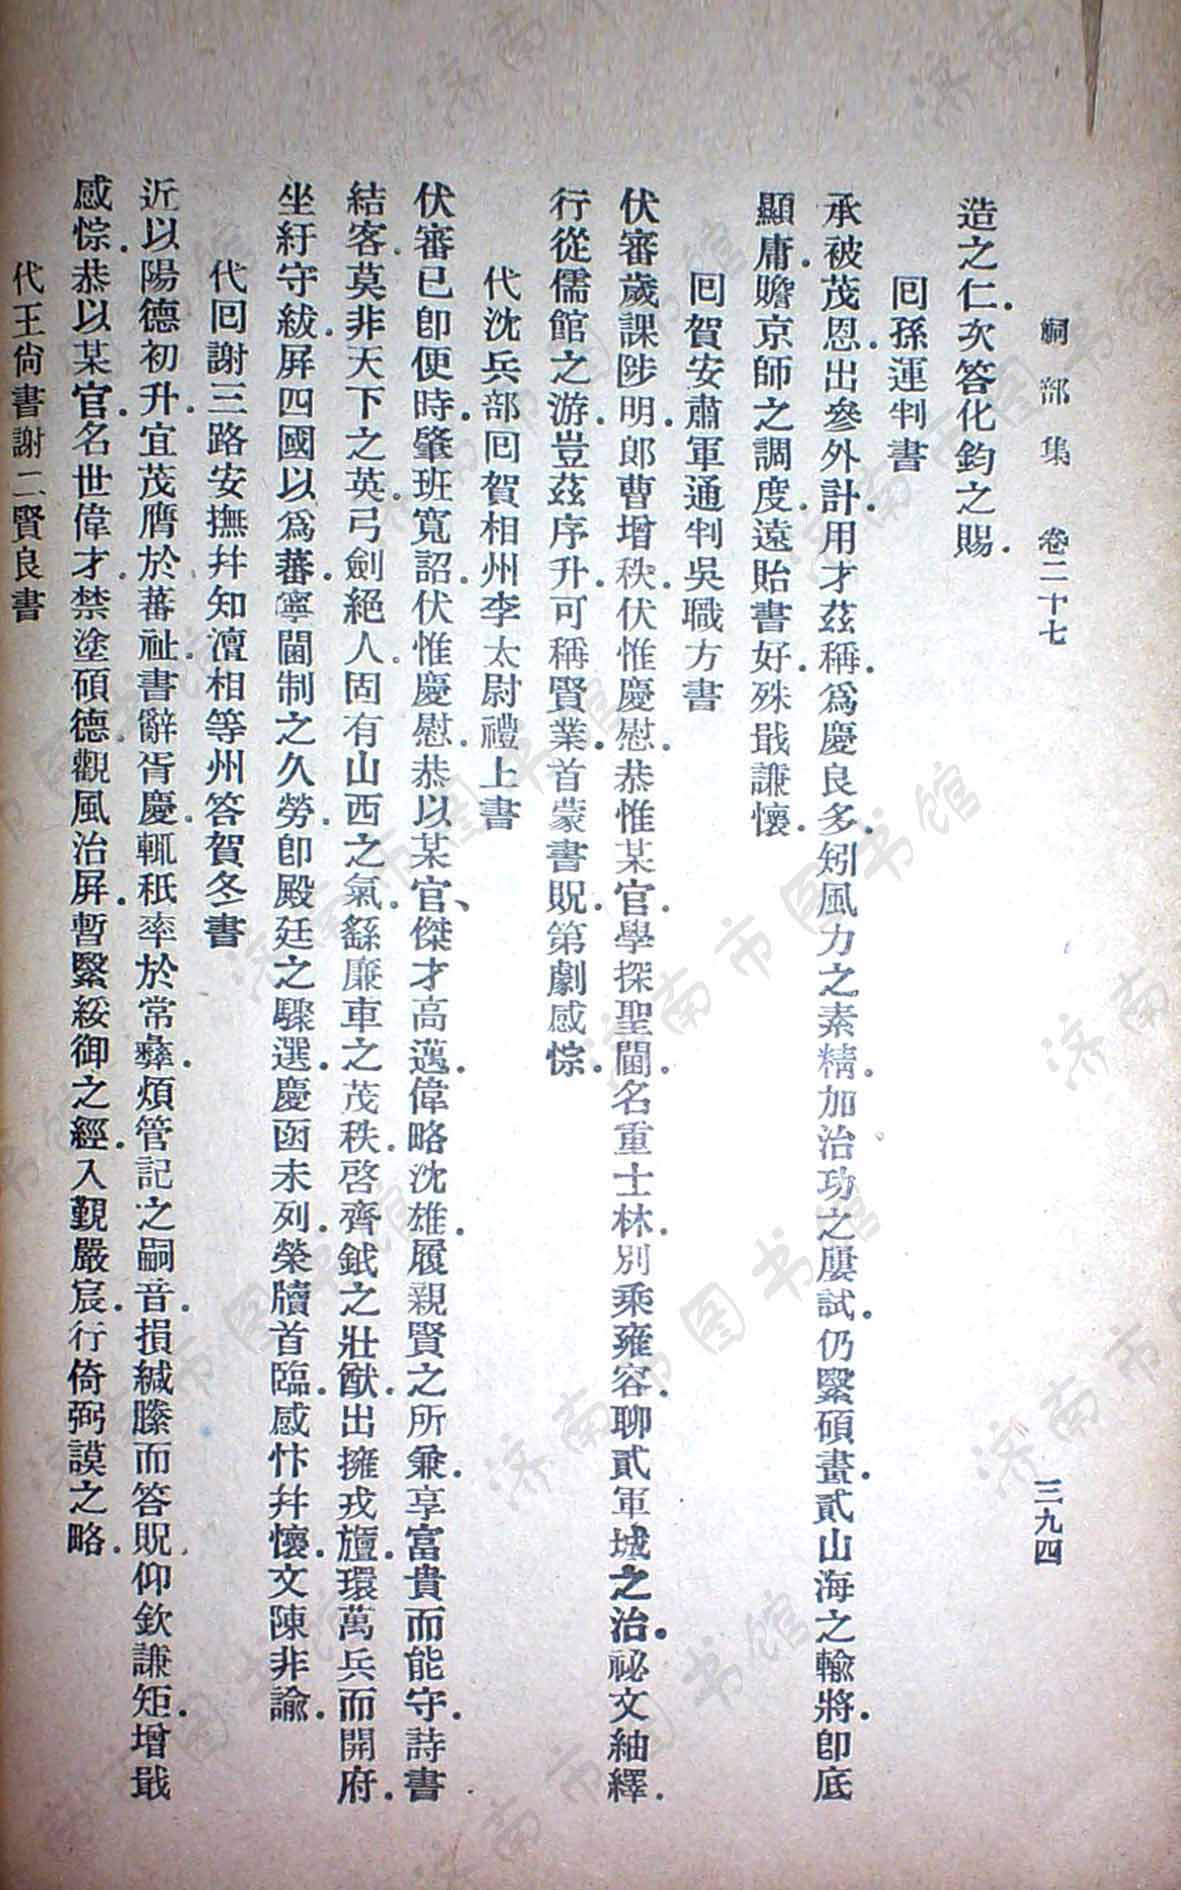 祠部集 卷二十七 三九四
造之仁.次答化鈞之賜.
回孫運判書
承被茂恩.出參外計.用才茲稱.爲慶良多.矧風力之素精.加治功之屢試.仍緊碩畫.貳山海之輸將.即底
顯庸.贍京師之調度.遠貽書好.殊戢謙懷.
回賀安肅軍通判吳職方書
伏審歲課陟明.郎曹增秩.伏惟慶慰.恭惟某官.學探聖閫.名重士林.別乘雍容.聊貳軍城之治.祕文紬繹.
行從儒館之游.豈茲序升.可稱賢業.首蒙書貺.第劇感悰.
代沈兵部回賀相州李太尉禮上書
伏審已卽便時.肇班寬詔.伏惟慶慰.恭以某官、傑才高邁.偉略沈雄.履親賢之所兼.享富貴而能守.詩書
結客.莫非天下之英.弓劍絕人.固有山西之氣.繇廉車之茂秩.啓齊鉞之壯猷.出擁戎旜.環萬兵而開府.
坐紆守紱.屏四國以爲蕃.寧閫制之久勞.卽殿廷之驟選.慶函未列.榮牘首臨.感忭幷懷.文陳非諭.
代回謝三路安撫幷知澶相等州答賀冬書
近以陽德初升.宜茂膺於蕃祉.書辭胥慶.輒祇率於常彝.煩管記之嗣音.損緘縢而答貺.仰欽謙矩.增戢
感悰.恭以某官.名世偉才.禁塗碩德.觀風治屏.暫緊綏御之經.入覲嚴宸.行倚弼謨之略.
代王尙書謝二賢良書
济南市图书馆